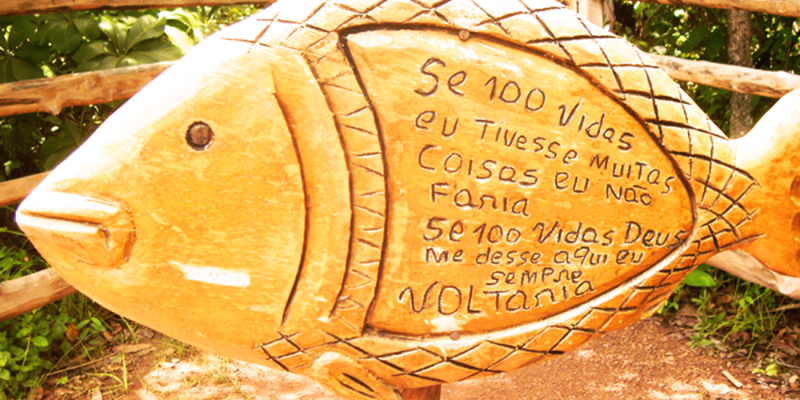 Se 100 Vidas
eu Tivesse MUITAS
COISAS eu NÃO
FARIA
Se 100 Vidas Deus
Me desse aqui eu
SEMPRE
VOLTARIA